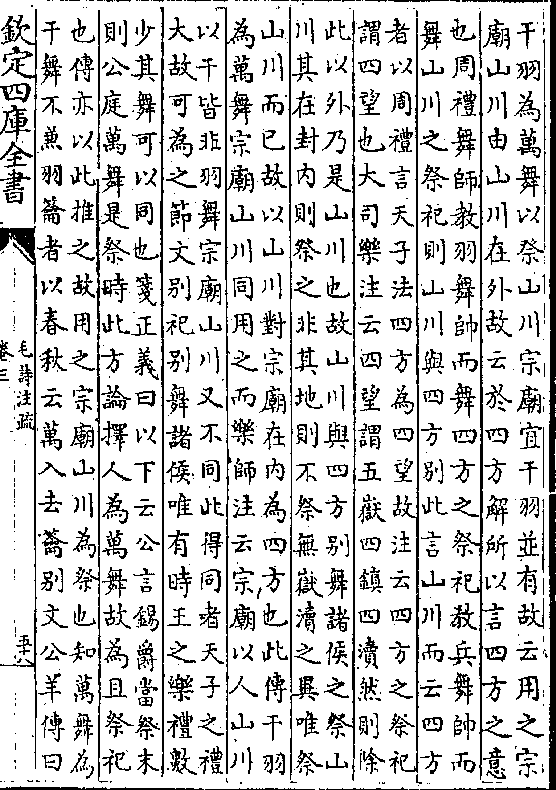 干羽為萬舞以祭山川宗廟宜干羽並有故云用之宗
廟山川由山川在外故云於四方解所以言四方之意
也周禮舞師教羽舞帥而舞四方之祭祀教兵舞帥而
舞山川之祭祀則山川與四方別此言山川而云四方
者以周禮言天子法四方為四望故注云四方之祭祀
謂四望也大司樂注云四望謂五嶽四鎮四瀆然則除
此以外乃是山川也故山川與四方別舞諸侯之祭山
川其在封内則祭之非其地則不祭無嶽瀆之異唯祭
山川而已故以山川對宗廟在内為四方也此傳干羽
為萬舞宗廟山川同用之而樂師注云宗廟以人山川
以干皆非羽舞宗廟山川又不同此得同者天子之禮
大故可為之節文別祀別舞諸侯唯有時王之樂禮數
少其舞可以同也箋正義曰以下云公言錫爵當祭末
則公庭萬舞是祭時此方論擇人為萬舞故為且祭祀
也傳亦以此推之故用之宗廟山川為祭也知萬舞為
干舞不兼羽籥者以春秋云萬入去籥別文公羊傳曰
欽定四庫全書
毛詩注疏
卷三
五十八